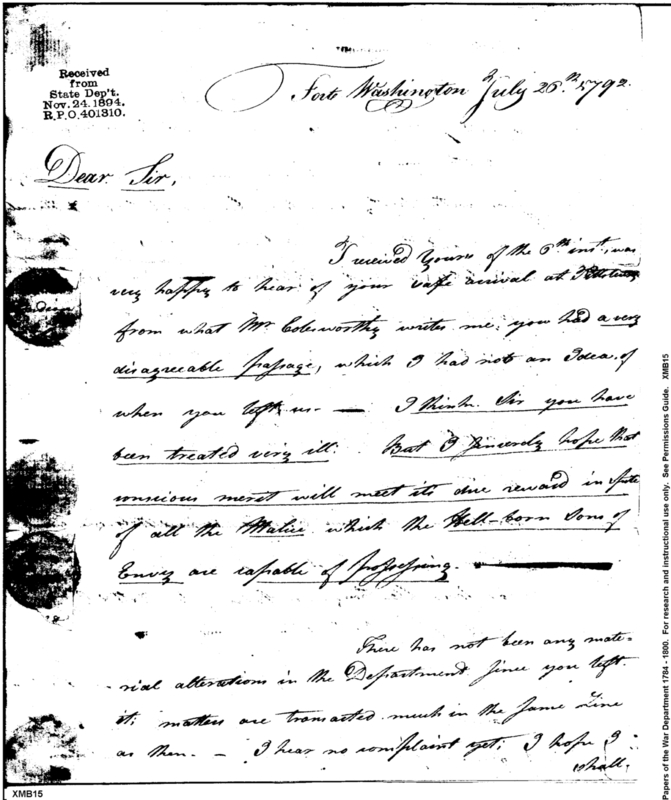 Received
from
State Dep't.
Nov. 24. 1894.
R.P.O. 401310.
Fort Washington July 26.th 1792.
Dear Sir,
I received yours of the 6th inst, was
very happy to hear of your safe arrival at
from what Mr. Colesworthy writes me, you had a very
disagreeable passage, which I had not an Idea of
when you left us. — I think Sir you have
been treated very ill. But I sincerely hope that
conscious merit will meet its due reward in spite
of all the Malice which the Hell-born Sons of
Envy are capable of possessing.
There has not been any mate-
rial alterations in the Department since you left
it; matters are transacted much in the same Line
as then. — I hear no complaint yet; I hope I
shall.
XMB15
Papers of the War Department 1784 - 1800. For research and instructional use only. See Permissions Guide. XMB15